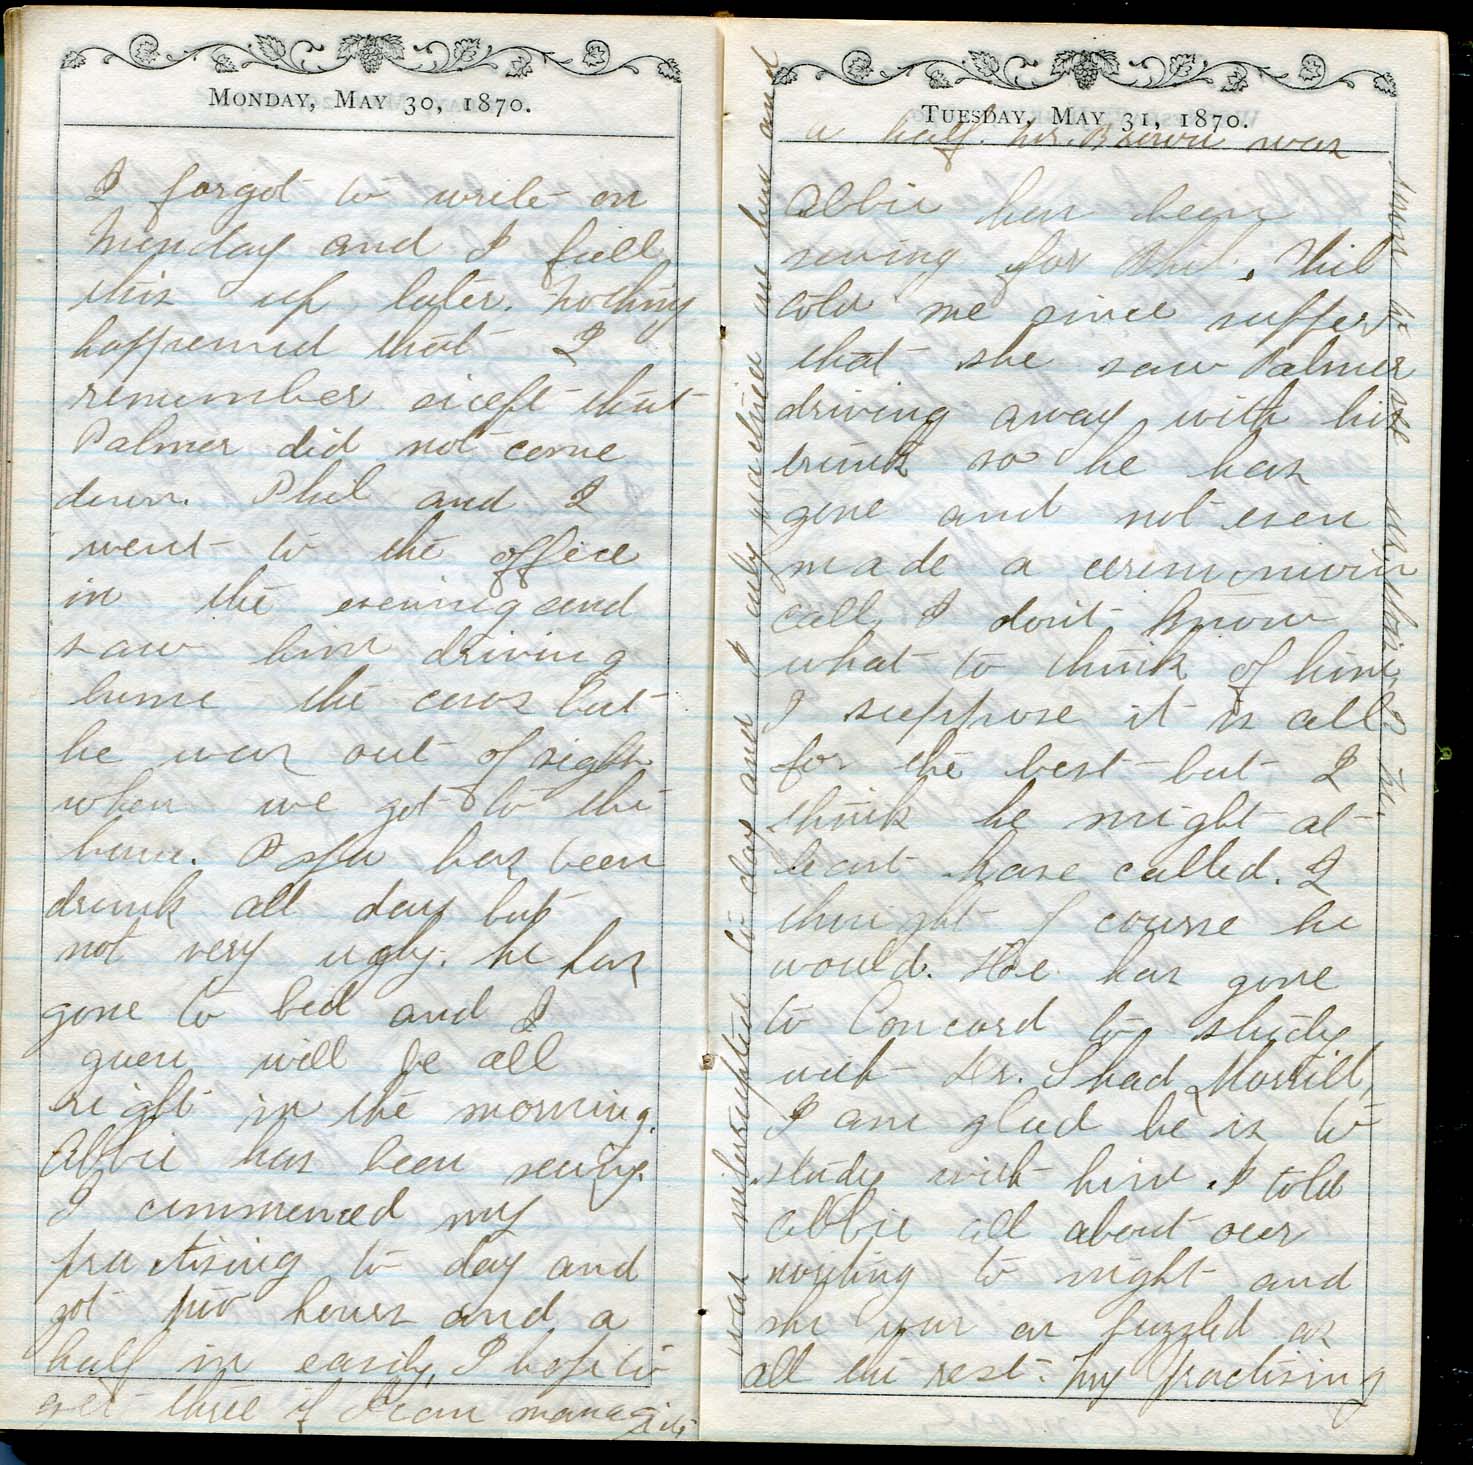 MONDAY, MAY 30, 1870.
I forgot to write on
Monday and I fill
this up later. Nothing
happened that I
remember except that
Palmer did not come
down. Phil and I
went to the office
in the evening and
saw him driving
home the cows but
he was out of sight
when we got to the
barn. Papa has been
drunk all day but
not very ugly. he has
gone to bed and I
guess will be all
right in the morning.
Abbie has been sewing.
I commenced my
practising to day and
got two hours and a
half in easily, I hope to
get three if I can manage it.
TUESDAY, MAY 31, 1870.
Abbie has been
sewing for Phil. Phil
told me since supper
that she saw Palmer
driving away with his
trunk so he has
gone and not even
made a ceremonious
call, I don't know
what to think of him,
I suppose it is all
for the best but I
think he might at
least have called. I
thought of course he
would. He has gone
to Concord to study
with Dr. Shad Morrill,
I am glad he is to
study with him. I told
Abbie all about our
writing to night and
she was as puzzled as
all the rest. My practising
was interrupted to day and I only practised one hour and
a half. Mr. Brown was
down to see